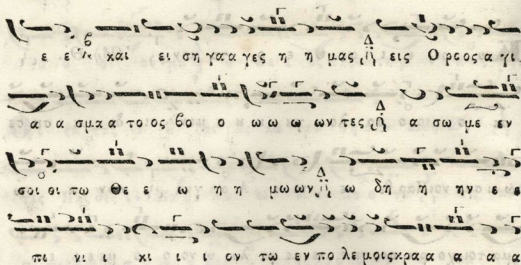 ε ε και ει ση γα α α γες η η μας εις Ο ρο ος α γι
α α α σμα α τος ος βο ο ω ω ω ω ων τες α σω με εν
σοι οι τω Θε ε ω η η μω ων ω δη η η ην ε ε
πι νι ι κι ι ι ι ον τω εν πο λε μοις κρα α α α α